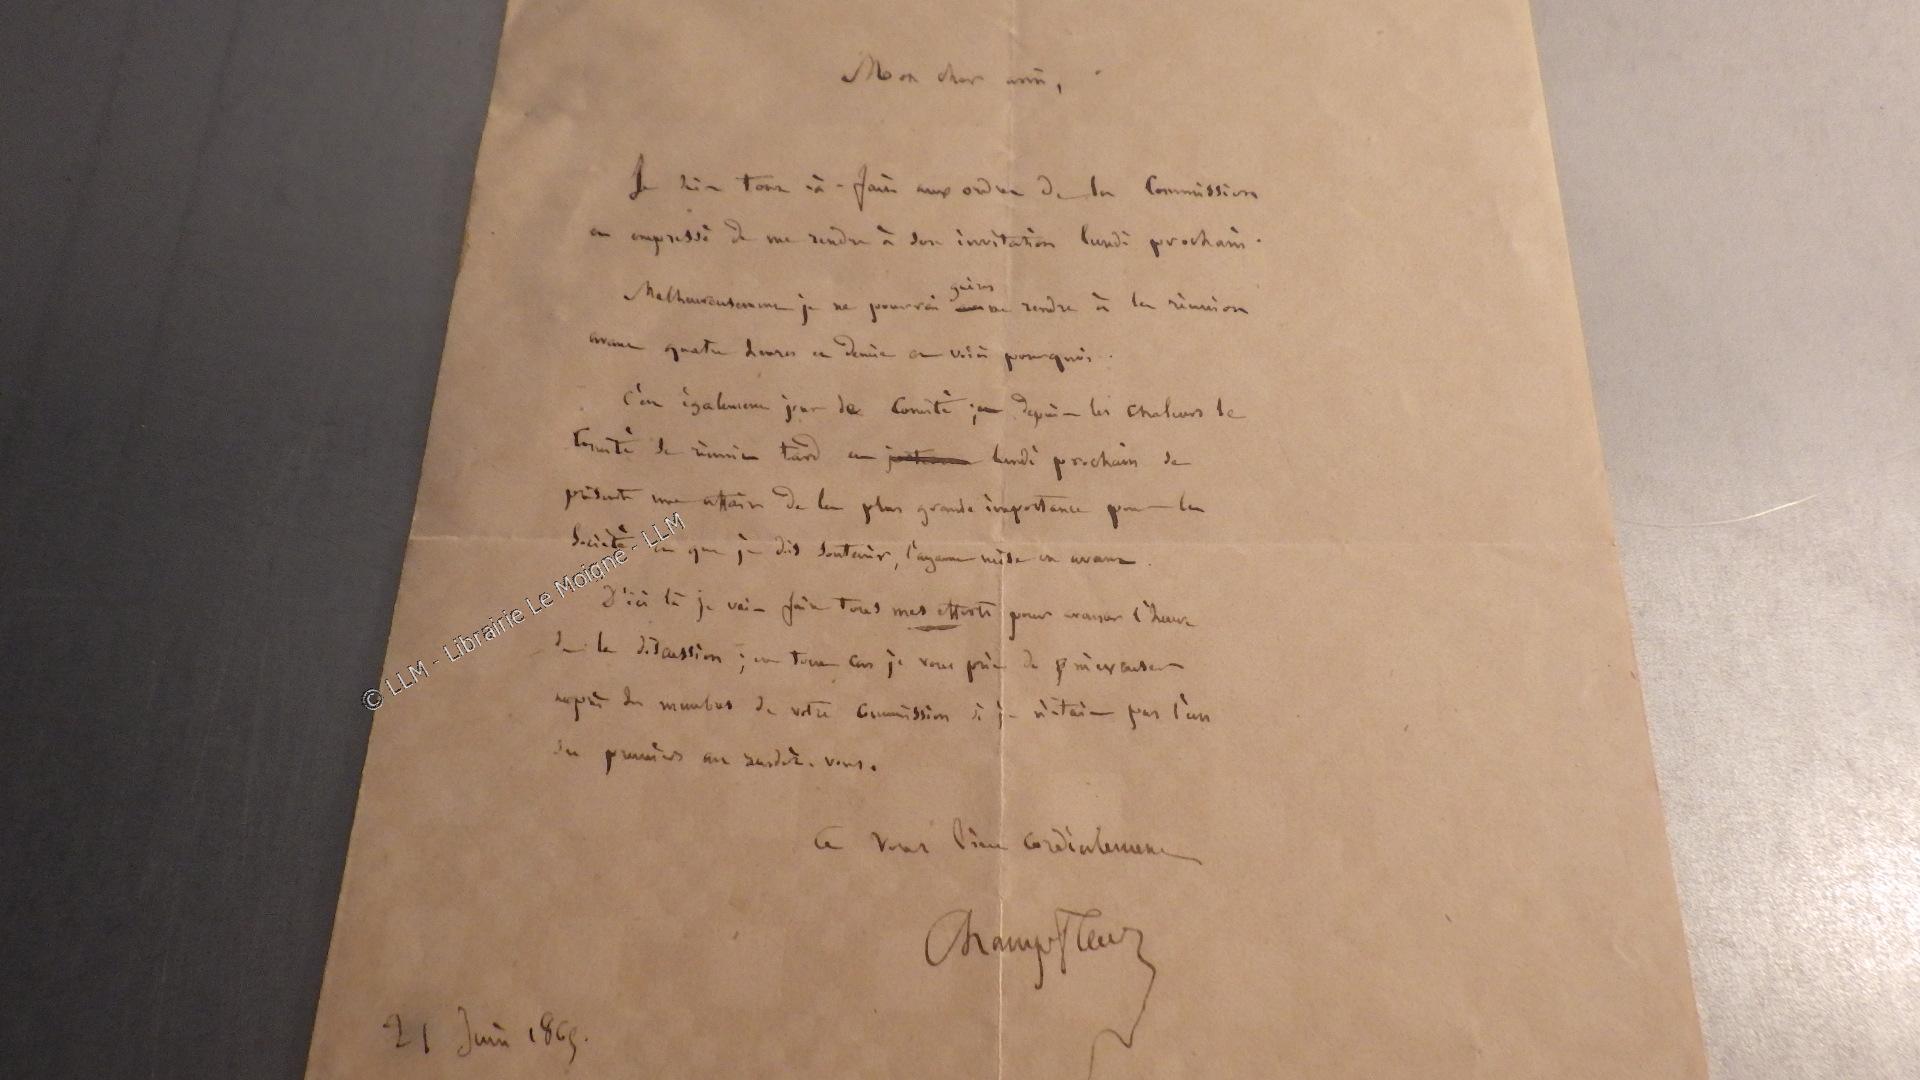 Mon cher ami,
Je suis tout-à-fait aux ordres de la Commission
et empressé de me rendre à son invitation lundi prochain.
Malheureusement je ne pourrai guères me rendre à la réunion
avant quatre heures et demie et voici pourquoi.
C'est également jour de Comité ; et depuis les chaleurs le
Comité se réunit tard et lundi prochain se
présente une affaire de la plus grande importance pour la
Société et que je dois soutenir, l'ayant mise en avant.
D'ici là je vais faire tous mes efforts pour avancer l'heure
de la discussion ; en tout cas je vous prie de m'excuser
auprès des membres de votre Commission si je n'étais pas l'un
des premiers au rendez-vous.
Et vous bien cordialement
Champfleury
21 Juin 1865.
© LLM - Librairie Le Moigne - LLM